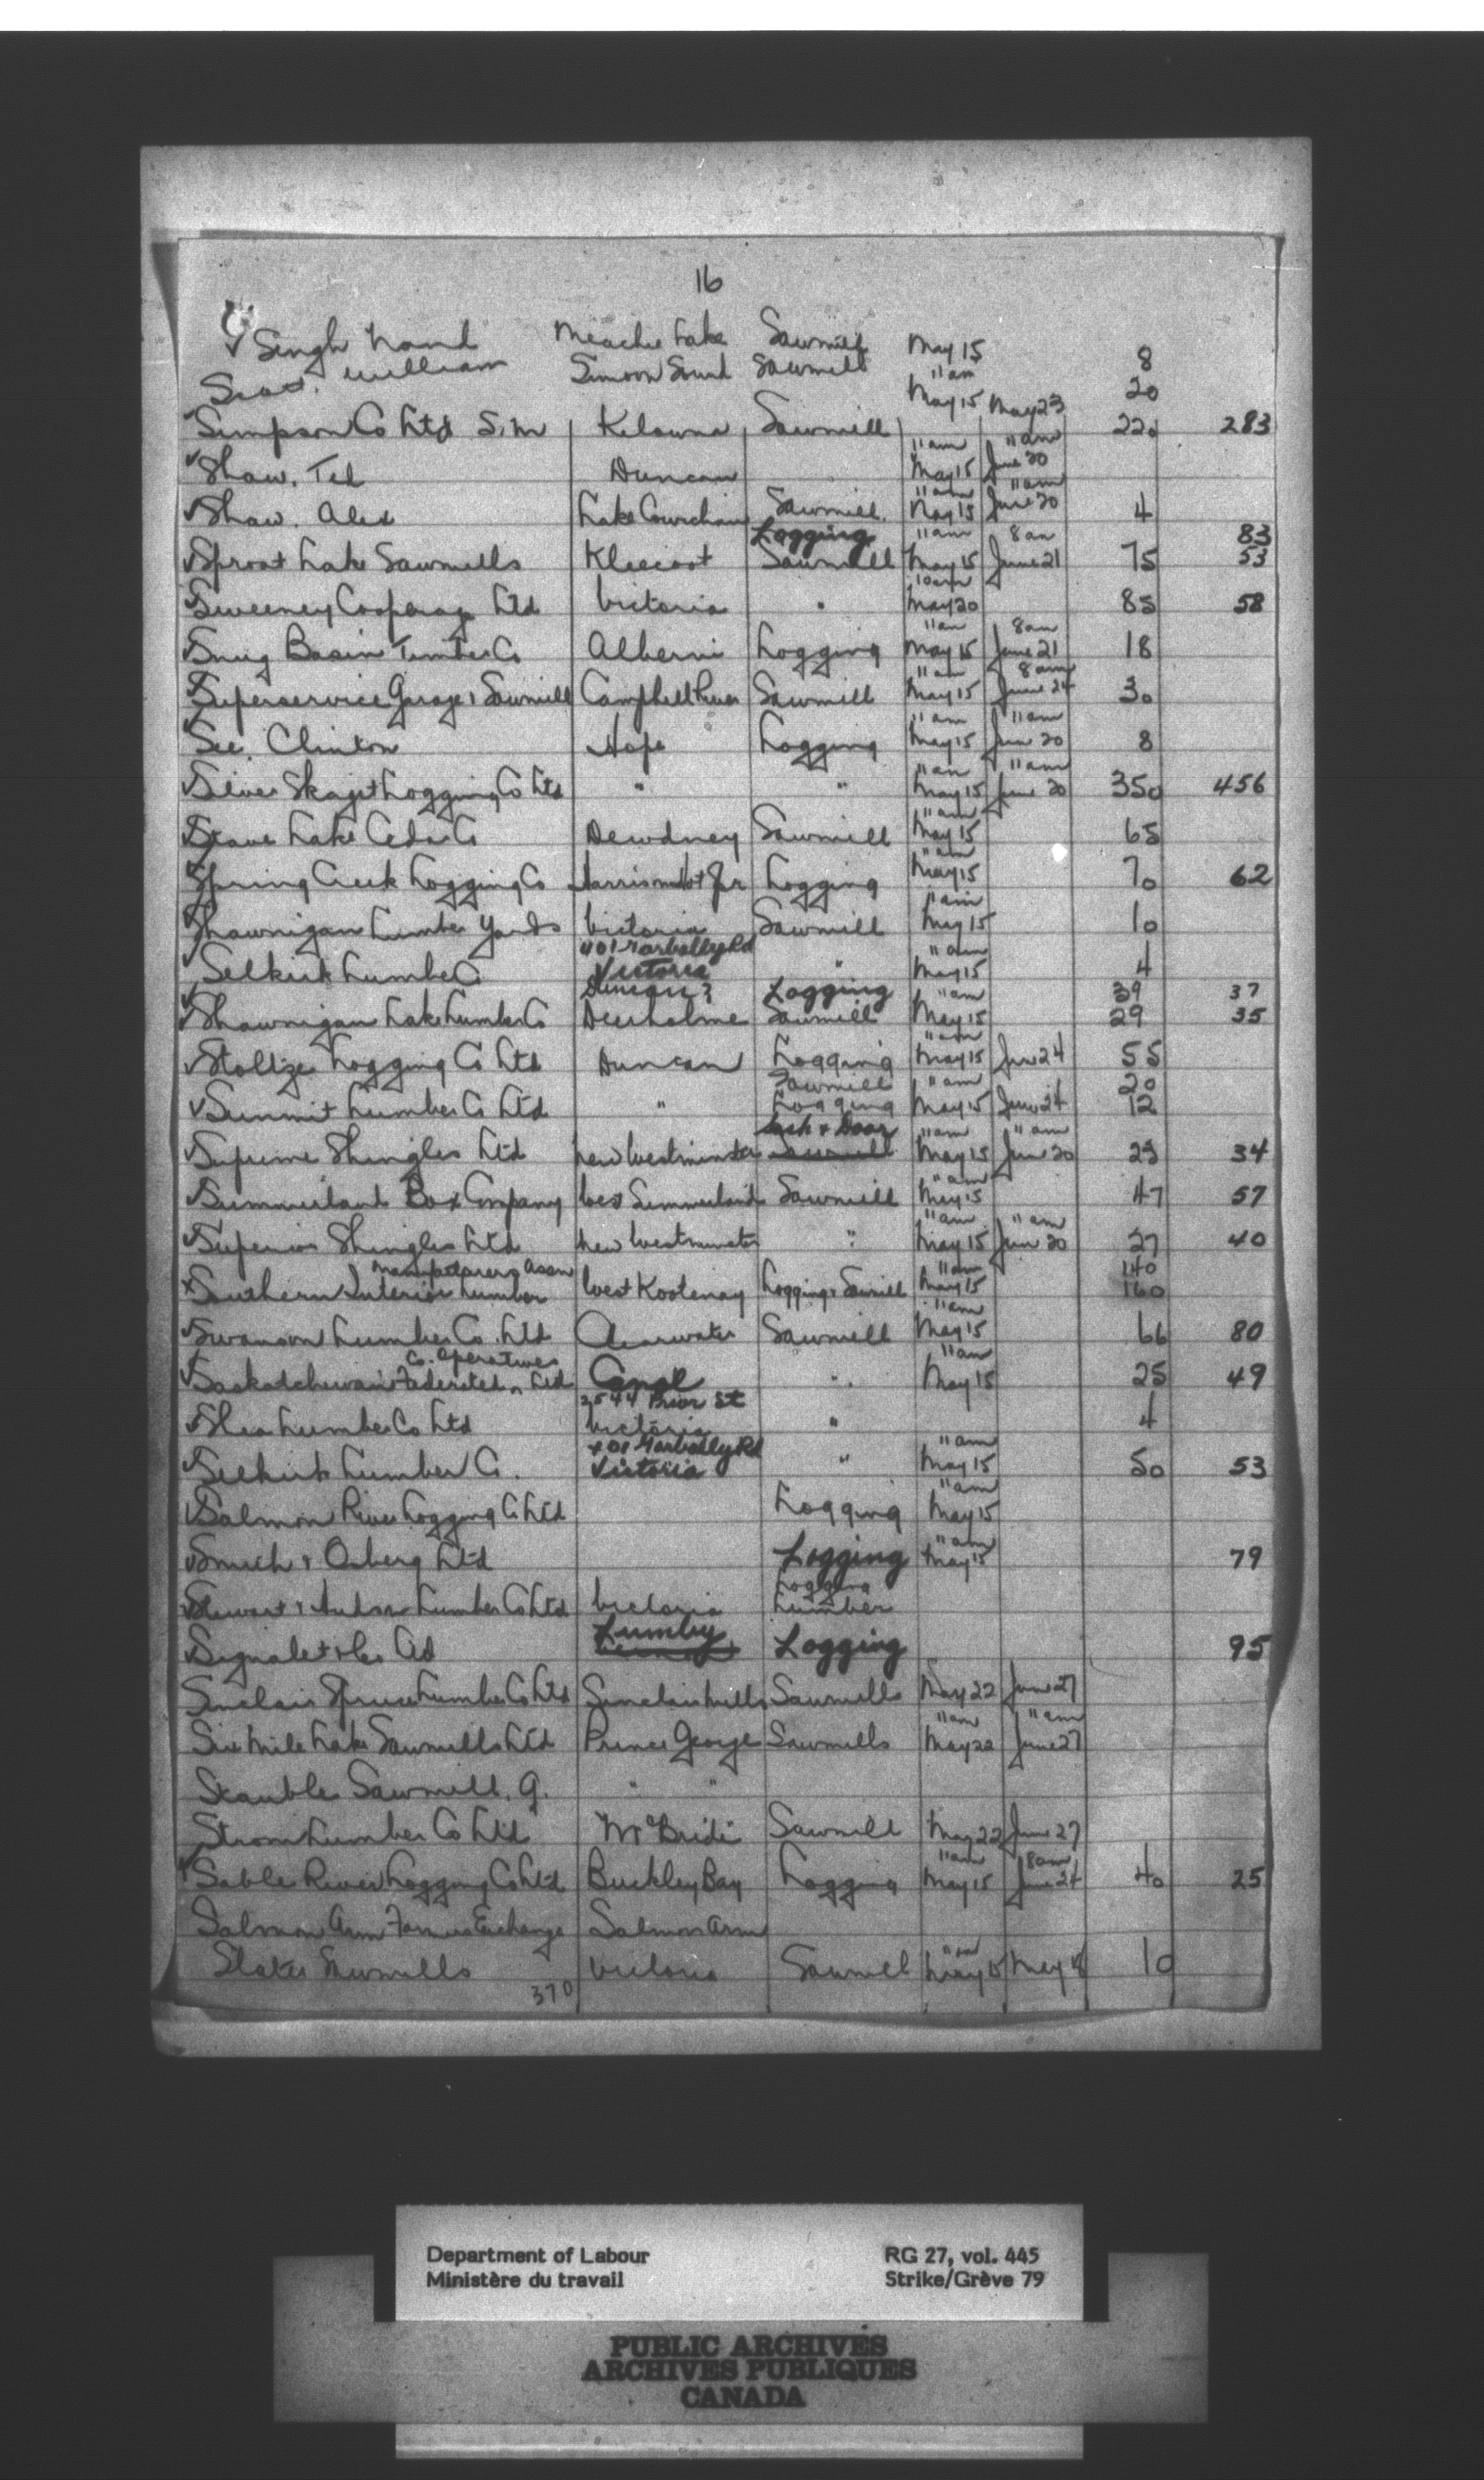 16
✓ Singh Nand Meachie Lake Sawmill May 15 8
Scott. William Simoon Sound Sawmill 11 am May 15 20
Simpson Co Ltd S.M Kelowna Sawmill May 23 220 283
✓ Shaw. Ted Duncan 11 am May 15 11 am June 20
✓ Shaw. Alex Lake Cowichan Sawmill. 11 am May 15 11 am June 20 4
Logging 83
✓ Sproat Lake Sawmills Kleecoot Sawmill 11 am May 15 8 am June 21 75 53
✓ Sweeney Cooperage Ltd Victoria " 10 am May 20 85 58
✓ Snug Basin Timber Co Alberni Logging 11 am May 15 8 am June 21 18
✓ Superservice Garage & Sawmill Campbell River Sawmill 11 am May 15 8 am June 24 30
✓ See. Clinton Hope Logging 11 am May 15 11 am June 20 8
✓ Silver Skagit Logging Co Ltd " " 11 am May 15 11 am June 20 350 456
✓ Stave Lake Cedar Co Dewdney Sawmill 11 am May 15 65
✓ Spring Creek Logging Co Harrison Hot Spr Logging 11 am May 15 70 62
✓ Shawnigan Lumber Yards Victoria Sawmill 11 am May 15 10
401 Garbally Rd
✓ Selkirk Lumber Co Victoria " 11 am May 15 4
Duncan? Logging 39 37
✓ Shawnigan Lake Lumber Co Deerholme Sawmill 11 am May 15 29 35
✓ Stoltze Logging Co Ltd Duncan Logging 11 am May 15 June 24 55
Sawmill 20
✓ Summit Lumber Co Ltd " Logging 11 am May 15 June 24 12
Sash & Door
✓ Supreme Shingles Ltd New Westminster Sawmill 11 am May 15 11 am June 20 23 34
✓ Summerland Box Company West Summerland Sawmill 11 am May 15 47 57
✓ Superior Shingles Ltd New Westminster " 11 am May 15 11 am June 20 27 40
Manufacturers Assn 140
Southern Interior Lumber West Kootenay Logging & Sawmill 11 am May 15 160
✓ Swanson Lumber Co. Ltd Clearwater Sawmill 11 am May 15 66 80
Co. operatives
✓ Saskatchewan Federated Ltd Canoe " 11 am May 15 25 49
2544 Prior St
✓ Shea Lumber Co Ltd Victoria " 4
401 Garbally Rd
✓ Selkirk Lumber Co. Victoria " 11 am May 15 50 53
✓ Salmon River Logging Co Ltd Logging 11 am May 15
✓ Smith & Osberg Ltd Logging 11 am May 15 79
Logging
✓ Stewart & Hudson Lumber Co Ltd Victoria Lumber
✓ Sigalet & Co Ltd Lumby Logging 95
Sinclair Spruce Lumber Co Ltd Sinclair Mills Sawmills May 22 June 27
Six Mile Lake Sawmills Ltd Prince George Sawmills 11 am May 22 11 am June 27
Stauble Sawmill. G. " "
Strom Lumber Co Ltd McBride Sawmill May 22 June 27
✓ Sable River Logging Co Ltd Buckley Bay Logging 11 am May 15 8 am June 24 40 25
Salmon Arm Farmers Exchange Salmon Arm
Slater Sawmills Victoria Sawmill 11 am May 15 May 18 10
370
Department of Labour
Ministère du travail
RG 27, vol. 445
Strike/Grève 79
PUBLIC ARCHIVES
ARCHIVES PUBLIQUES
CANADA